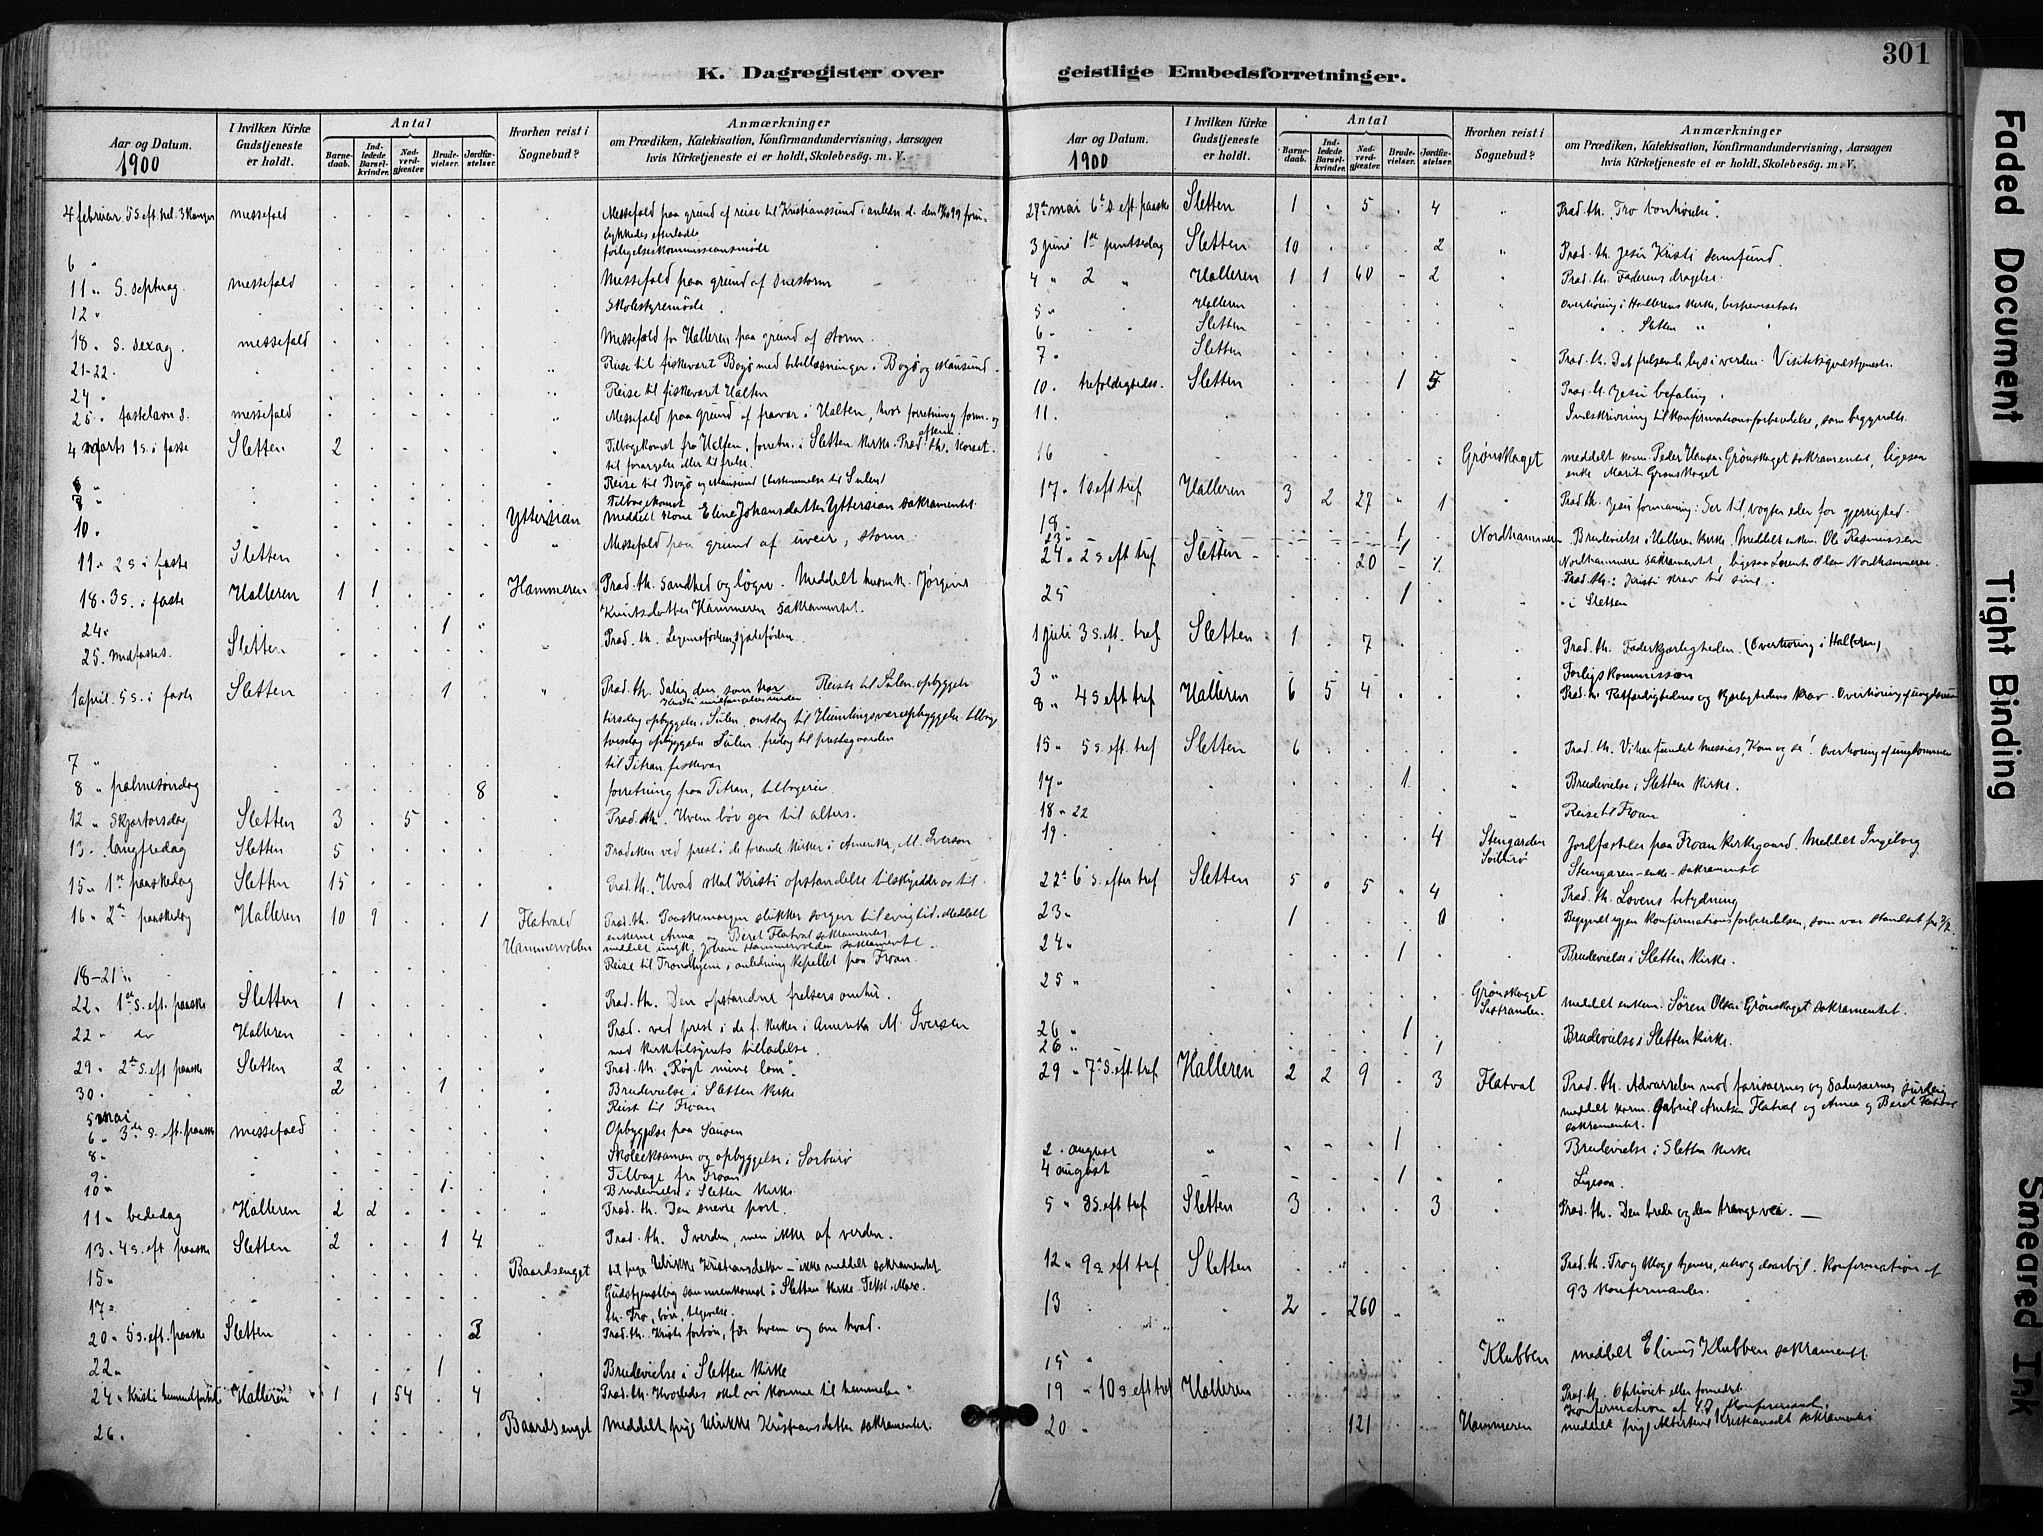 301
K. Dagregister over geistlige Embedsforretninger.
Aar og Datum. 1900
I hvilken Kirke Gudstjeneste er holdt.
Antal
Barnedaab.
Indledede Barselkvinder.
Nadverdgjæster.
Brudevielser.
Jordfæstelser.
Hvorhen reist i Sognebud?
Anmærkninger
om Prædiken, Katekisation, Konfirmandundervisning, Aarsagen
hvis Kirketjeneste ei er holdt, Skolebesøg. m. V.
4 februar. 5 s. eft. hel. 3 konger messefald Messefald paa grund af reise til Kristianssund i anledn. d. den
forligelseskommissionsmøde
6 "
11 " S. septuag. messefald Messefald paa grund af snestorm
12 " Skolestyremøde
18 " S. sexag. messefald Messefald for Halleren paa grund af storm.
21-22. Reise til fiskeværet Bogø med bibellæsninger i Bogø og Mausund.
24 " Reise til fiskeværet Halten
25 " fastelavn s. messefald Messefald paa grund af fravær i Halten, hvor forretning form. og efterm.
4 marts 1 s. i faste Sletten 2 Tilbagekomst fra Halten, forretn. i Sletten kirke. Præd. th. Korset
til forargelse eller til frelse.
Reise til Bogø og Mausund (bestemmelse til Sulen)
Tilbagekomst
10 " Yttersian Meddelt kone Eline Johansdatter Yttersian sakramentet.
11 " 2 s. i faste Sletten Messefald paa grund af uveir, storm.
18. 3 s. i faste Halleren 1 1 Hammeren Præd. th. Sandhed og løgn. Meddelt husmk. Jørgine
Knutsdatter Hammeren sakramentet.
24 " 1
25. Midfastes. Sletten Præd. th. Legemsføden, sjæleføden.
1 april. 5 s. i faste Sletten 1 Præd. th. Salig den, som har Reiste til Sulen, opbyggelse
tirsdag opbyggelse i Sulen, onsdag til Humlingsværet opbyggelse tilbage
torsdag opbyggelse Sulen, fredag til prestegaarden
7 " til Titran fiskevær
8 " palmesøndag 8 forretning paa Titran, tilbagereise
12 " Skjærtorsdag Sletten 3 5 Præd. th. Hvem bør gaa til alters.
13. langfredag Sletten 5 Prædiken ved prest i de forenede kirker i Amerika, M. Iverson
15 " 1ste paaskedag Sletten 15 Præd. th. Hvad skal Kristi opstandelse tilskynde os til.
16 " 2den paaskedag Halleren 10 9 1 Flatvald Præd. th. Paaskemorgen slukker sorgen til evig tid. Meddelt
enkerne Anna og Beret Flatval sakramentet
Hammervolden meddelt ungk. Johan Hammervolden sakramentet.
18-21 " Reise til Trondhjem i anledning kapellet paa Froan.
22. 1ste s. eft. paaske Sletten 1 Præd. th. Den opstandne frelsers omhu.
22 " do Halleren Præd. ved prest i de f. kirker i Amerika M. Iversen
med kirketilsynets tilladelse.
29. 2den s. eft paaske Sletten 2 Præd. th. "Røgt mine lam".
30. 2 1 Brudevielse i Sletten kirke
5 mai Reist til Froan
6 " 3die s. eft. paaske messefald Opbyggelse paa Sauøen
8 " Skoleeksamen og opbyggelse i Sørburø
9 " Tilbage fra Froan
10 " 1 Brudevielse i Sletten kirke
11 " bededag Halleren 2 2 Præd. th. Den snevre port.
13. 4 s. eft. paaske Sletten 2 1 4 Præd. th. I verden, men ikke af verden.
15 " Baardsenget til pige Ulrikke Kristiansdatter – ikke meddelt sakramentet
17 " Gudstjenstlig sammenkomst i Sletten kirke. Tekst: Marc.
th. Tro, bøn,
20 " 5 s. eft. paaske Sletten 2 Præd. th. Kristi forbøn, for hvem og om hvad.
22 " 1 Brudevielse i Sletten kirke
24 " Kristi himmelfartsd. Halleren 1 1 54 4 Præd. th. Hvorledes skal vi komme til himmelen
26. Baardsenget Meddelt pige Ulrikke Kristiansdatter sakramentet.
Aar og Datum. 1900
I hvilken Kirke Gudstjeneste er holdt.
Antal
Barnedaab.
Indledede Barselkvinder.
Nadverdgjæster.
Brudevielser.
Jordfæstelser.
Hvorhen reist i Sognebud?
Anmærkninger
om Prædiken, Katekisation, Konfirmandundervisning, Aarsagen
hvis Kirketjeneste ei er holdt, Skolebesøg. m. V.
27de mai 6te s. eft. paaske Sletten 1 5 4 Præd. th. "Tro
3 juni 1ste pintsedag Sletten 10 2 Præd. th. Jesu Kristi samfund.
4 " 2 " Halleren 1 1 60 2 Præd. th. Faderens dragelse.
5 " Halleren Overhøring i Hallerens kirke,
6 " Sletten " Sletten "
7 " Sletten Præd. th. Det frelsende lys i verden. Visitatsgudstjeneste.
10. trefoldighedss. Sletten 1 5 Præd. th. Jesu befaling.
11. Indskrivning til konfirmationsforberedelse, som begyndte.
16 Grønskaget meddelt kone Peder Hansen Grønskaget sakramentet, ligesaa
enke Marit Grønskaget
17 " 1 s. eft tref Halleren 3 2 27 1 Præd. th. Jesu formaning: Ser til vogter eder for gjerrighed.
18. 1
23 " 1 Nordhammeren Brudevielse i Halleren kirke. Meddelt enkem. Ole Rasmussen
24 " 2 s. eft tref Sletten 20 Nordhammeren sakramentet, ligesaa Lorents Olsen Nordhammeren.
Præd. th.: Kristi krav til sine.
25 1 " i Sletten
1 juli 3 s. eft. tref Sletten 1 7 Præd. th. Faderkjærligheden. (Overhøring i Halleren)
3 " Forligskommission
8 " 4 s. eft tref Halleren 6 5 4 Præd. th. Retfærdighedens og kjærlighedens krav. Overhøring af ungdommen
15 " 5 s. eft. tref Sletten 6 Præd. th. Vi har fundet Messias, Kom og se! Overhøring af ungdommen
17 " 1 Brudevielse i Sletten kirke.
18 - 22 Reise til Froan
19. 4 Stengarden Sørburø Jordfæstelse paa Froan kirkegaard. Meddelt Ingeborg
Stengaren - enke - sakramentet
22 " 6 s. efter tref Sletten 5 0 5 4 Præd. th. Lovens betydning
23 " 1 0 Begyndt igjen konfirmationsforberedelsen, som var standset fra
24 " 1 Brudevielse i Sletten kirke.
25 " Grønskaget Sistranden. meddelt enkem. Søren Olsen Grønskaget sakramentet.
26 " 1 Brudevielse i Sletten kirke.
26 " 1
29 " 7de s. eft tref Halleren 2 2 9 3 Flatval Præd. th. Advarselen mod farisæernes og sadukæernes surdeig
meddelt kone Gabriel Arntsen Flatval og Anna og Beret Flatval
sakramentet.
2. august 1 Brudevielse i Sletten kirke
4 august 1 Ligesaa.
5 " 8 s. eft tref Sletten 3 3 Præd. th. Den brede og den trange vei. —
12 " 9 s. eft tref Sletten Præd. th. Tro og kloge tjenere, utro og daarlig. Konfirmation af
93 konfirmanter.
13 2 260
15 " Klubben meddelt Elinus Klubben sakramentet
19 " 10 s. eft tref Halleren Præd. th. Ophøiet eller fornedret.
Konfirmation af 47 konfirmander.
20 " 121 Hammeren meddelt pige Albertine Kristiansdt sakramentet
Faded Document
Tight Binding
Smeared Ink